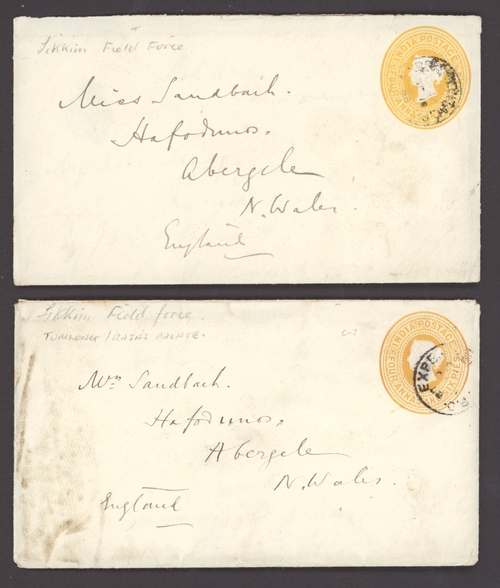 Sikkim Field Force
INDIA POSTAGE
Miss Sandbach.
Hafodunos.
Abergele
N. Wales.
England
Sikkim Field force.
TUMLONG / RAJA'S PALACE.
INDIA POSTAGE
EXPE
Mrs Sandbach.
Hafodunos,
Abergele
N. Wales.
England